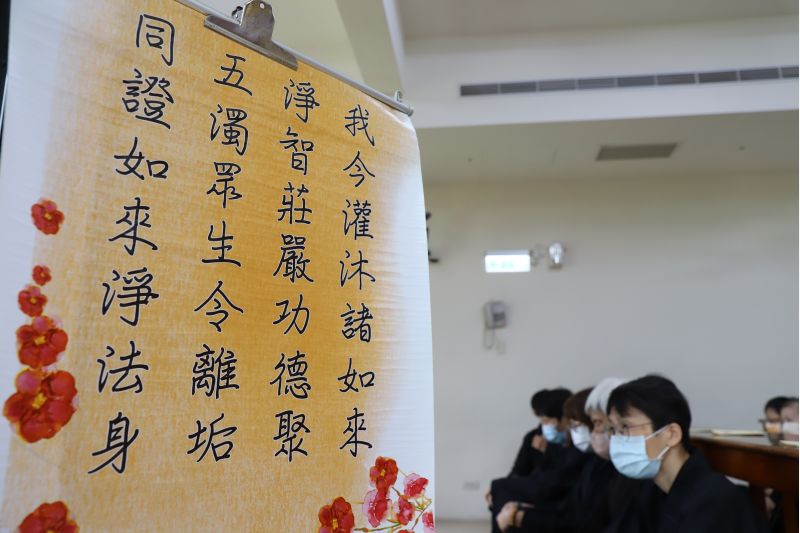 我今灌沐諸如來
淨智莊嚴功德聚
五濁眾生令離垢
同證如來淨法身